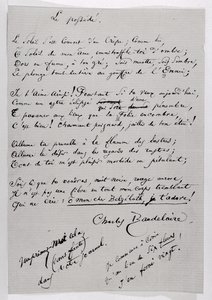 Le possédé
Le Soleil s'est couvert d'un crêpe. Comme lui,
Ô Soleil de mon âme, emmitoufle-toi d'ombre;
Dors ou fume, à ton gré; Sois muette, Sois Sombre,
Et plonge tout entière au gouffre de l'Ennui;
Je t'aime Ainsi! Pourtant Si tu veux aujourd'hui,
Comme un astre éclipsé qui sort pénombre,
Te pavaner aux lieux que la Folie encombre,
C'est bien! Charmant poignard, jaillis de ton étui!
Allume ta prunelle à la flamme des lustres!
Allume le désir dans les regards des rustres!
Tout de toi m'est plaisir morbide ou pétulant;
Sois ce que tu voudras, nuit noire, rouge aurore,
Il n'est pas une fibre en tout mon corps tremblant
Qui ne crie: Ô mon cher Belzébuth, je t'adore!
Charles Baudelaire